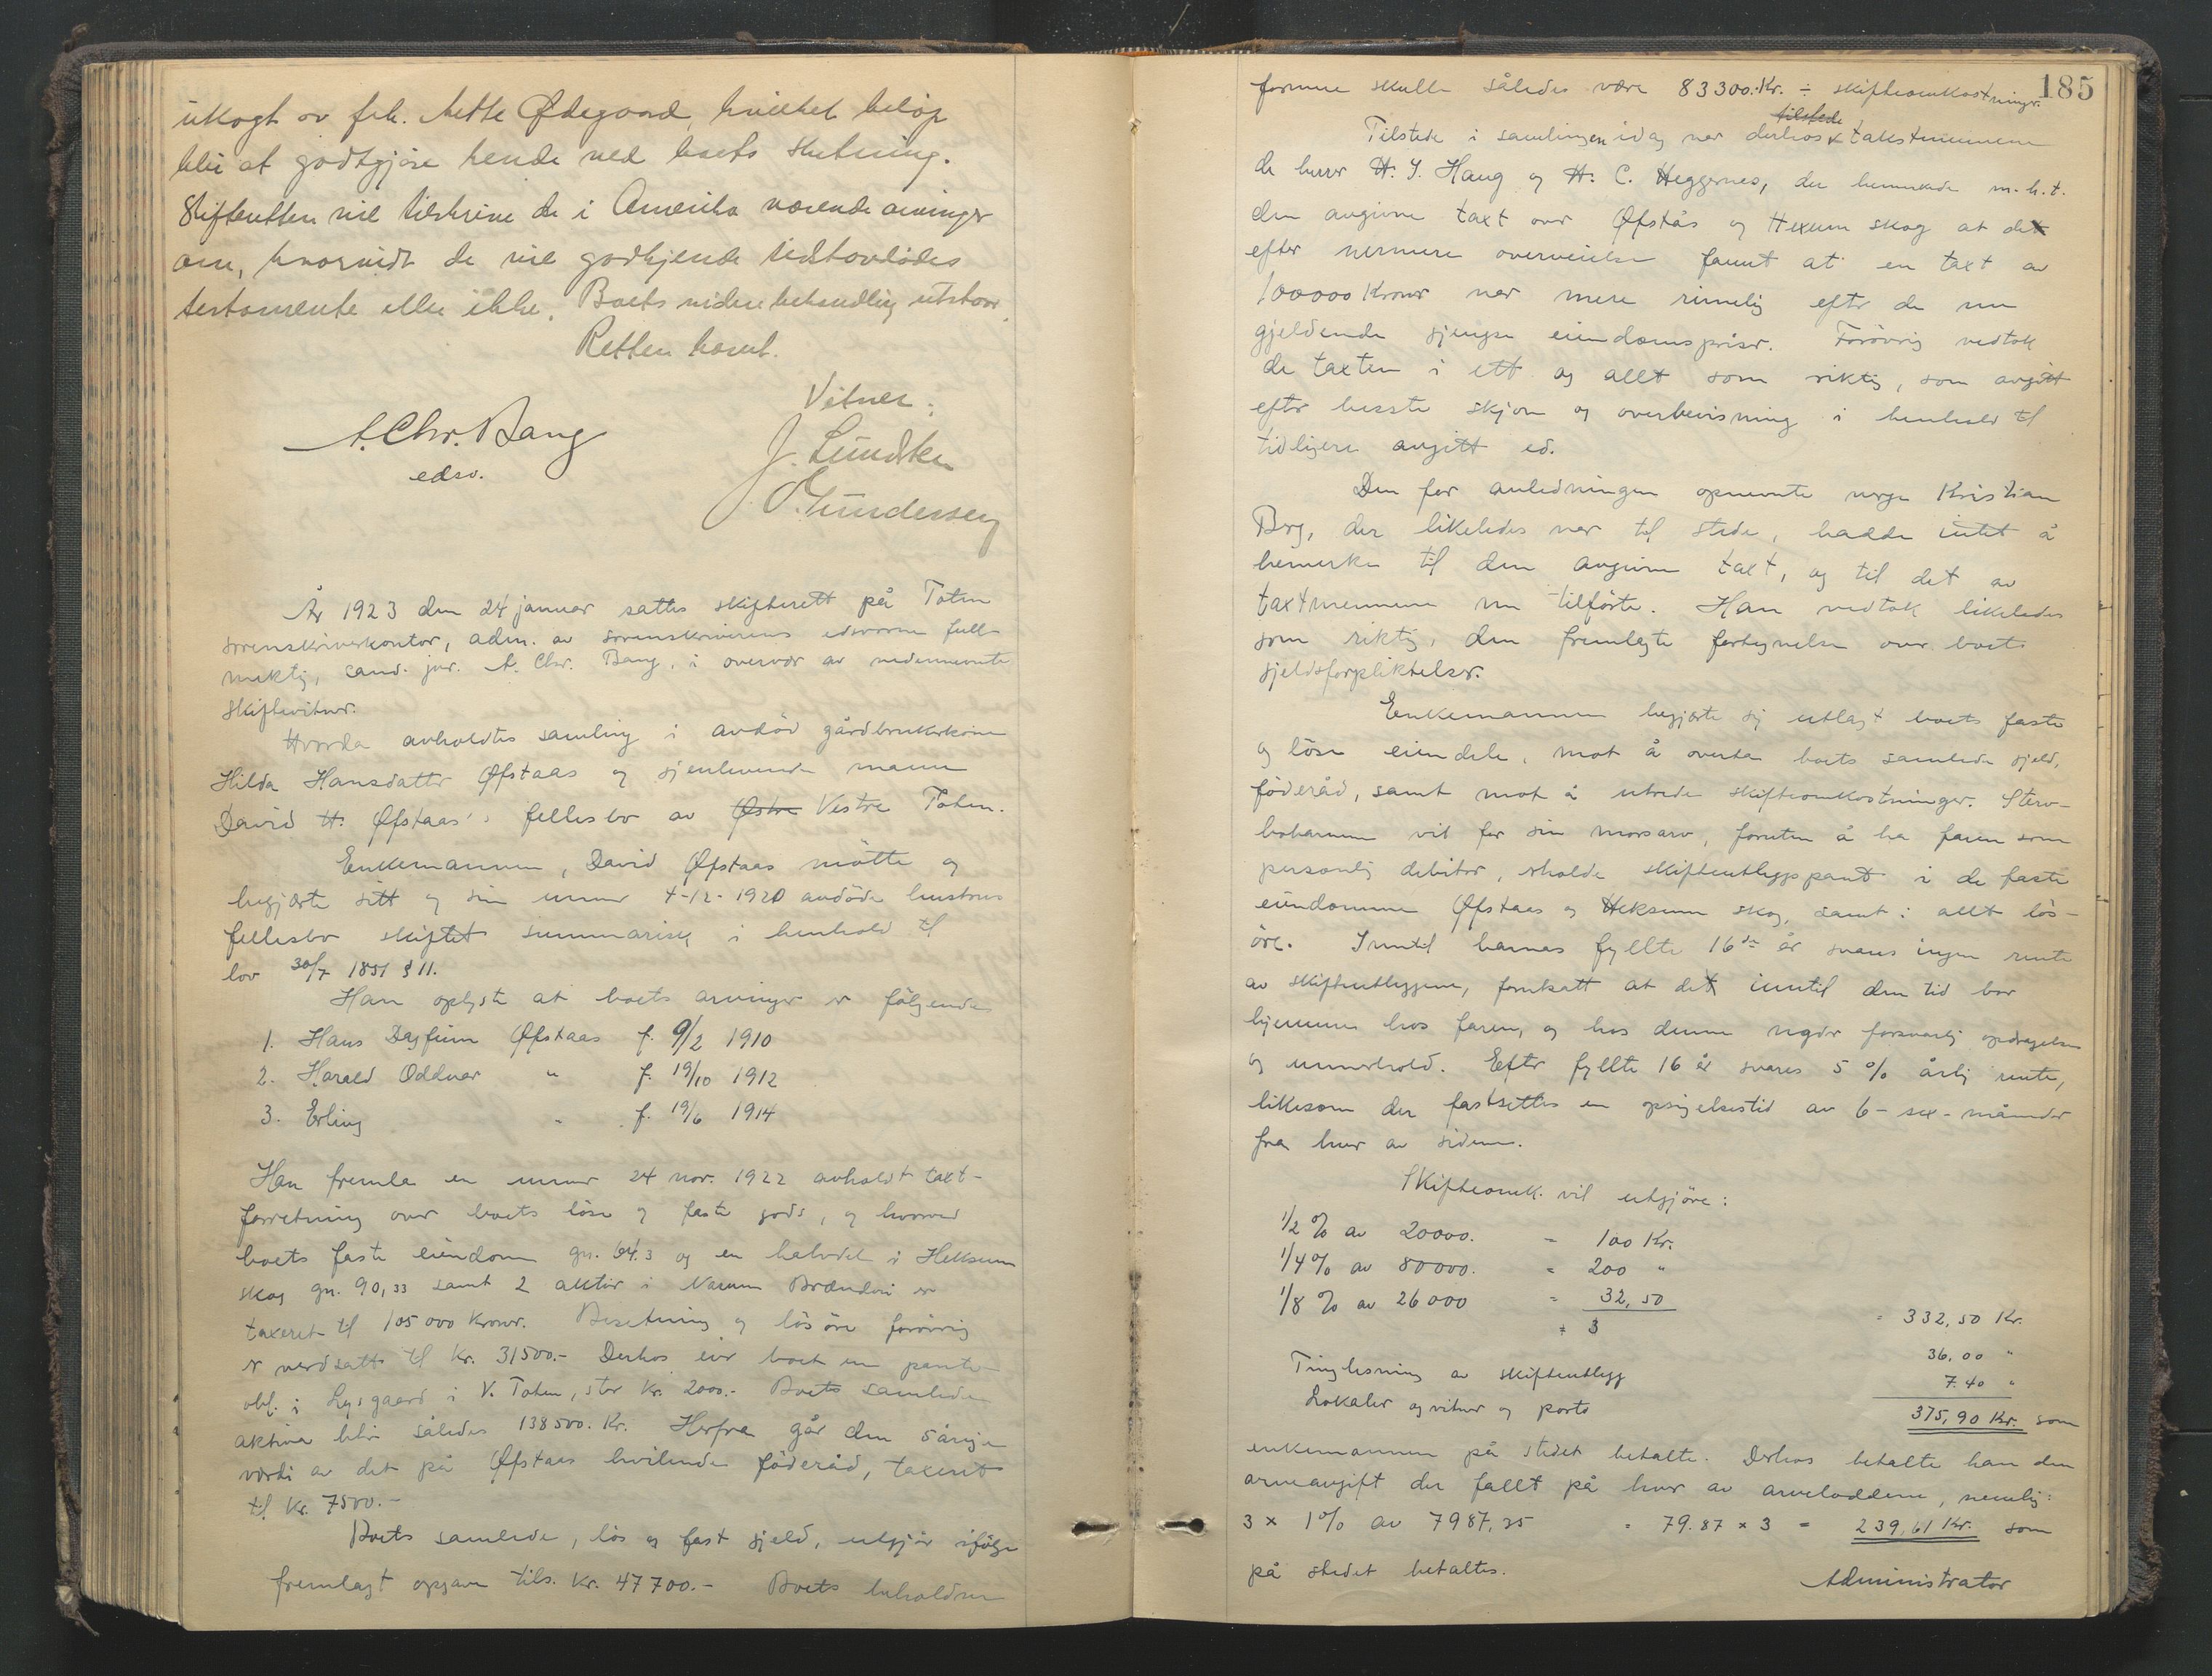 ukogt av frk. Mette Ødegaard, hvilket beløp
blir at godtgjøre hende ved boets slutning.
Skifteretten vil tilskrive de i Amerika værende arvinger
om, hvorvidt de vil godkjende
testamente eller ikke. Boets videre behandling utstaar.
Retten hævet.
Vitner:
A. Chr. Bang
edsv.
J. Lundsten
O. Gundersen
År 1923 den 24 januar sattes skifterett på Toten
sorenskriverkontor, adm. av sorenskriverens edsvorne full-
mektig, cand. jur. A. Chr. Bang, i overvær av nedennevnte
skiftevitner.
Hvorda avholdtes samling i avdød gårdbrukerkone
Hilda Hansdatter Øfstaas og gjenlevende mann
David H. Øfstaas's fellesbo av Østre Vestre Toten.
Enkemannen, David Øfstaas møtte og
begjærte sitt og sin under 4-12-1920 avdøde hustrus
fellesbo skiftet summarisk i henhold til
lov 30/7 1851 § 11.
Han oplyste at boets arvinger er følgende
1. Hans Dagfinn Øfstaas f. 9/2 1910
2. Harald Oddvar " f. 19/10 1912
3. Erling " f. 19/6 1914
Han fremla en under 24 nov. 1922 avholdt taxt-
forretning over boets løse og faste gods, og hvorved
boets faste eiendom gn. 64.3 og en halvdel i Heksum
skog gn. 90,33 samt 2 aktier i Narum Brænderi er
taxeret til 105 000 kroner. Besetning og løsøre forøvrig
er verdsatt til Kr. 31500.- Derhos eier boet en pante-
obl. i Lysgaard i V. Toten, stor Kr. 2000.- Boets samlede
aktiva blir således 138500. Kr. Herfra går den 5årige
verdi av det på Øfstaas hvilende føderåd, taxeret
til Kr. 7500.-
Boets samlede, løs og fast gjeld, utgjør ifølge
fremlagt opgave tils. Kr. 47700.- Boets beholdne
185
formue skulle således være 83300.Kr. ÷ skifteomkostninger.
tilstede
Tilstede i samlingen idag var derhos takstmennene
de herrer H. J. Haug og H. C. Heggernes, der bemerkede m.h.t.
den avgivne taxt over Øfstås og Hexum skog at det
efter nermere overveielse fannt at en taxt av
100000 Kroner var mere rimelig efter de nu
gjeldende gjengse eiendomspriser. Forøvrig vedtok
de taxten i ett og allt som riktig, som avgitt
efter beste skjøn og overbevisning i henhold til
tidligere avgitt ed.
Den for anledningen opnevnte verge Kristian
Berg, der likeledes var til stede, hadde intet å
bemerke til den avgivne taxt, og til det av
taxtmennene nu tilførte. Han vedtok likeledes
som riktig, den fremlagte fortegnelse over boets
gjeldsforpliktelser.
Enkemannen begjærte sig utlagt boets faste
og løse eiendele, mot å overta boets samlede gjeld,
føderåd, samt mot å utrede skifteomkostninger. Sterv-
bobarnene vil for sin morsarv, foruten å ha faren som
personlig debitor, erholde skifteutleggspant i de faste
eiendomme Øfstaas og Heksum skog, samt i allt løs-
øre. Inntil barnas fyllte 16de år svares ingen rente
av skifteutleggene, forutsatt at det inntil den tid bor
hjemme hos faren, og hos denne nyder forsvarlig opdragelse
og underhold. Efter fyllte 16 år svares 5 % årlig rente,
likesom der fastsettes en opsigelsestid av 6 - sex - måneder
fra hver av sidene.
Skifteomk. vil utgjøre:
1/2 % av 20000. = 100 Kr.
1/4 % av 80000. = 200 "
1/8 % av 26000 = 32,50
= 332,50 Kr.
Tinglesning av skifteutlegg 36,00 "
Lokaler og vitner og porto 7.40 "
375,90 Kr. som
enkemannen på stedet betalte. Derhos betalte han den
arveavgift der fallt på hver av arveloddene, nemlig:
3 x 1% av 7987,25 = 79.87 x 3 = 239,61 Kr. som
på stedet betaltes.
Administrator